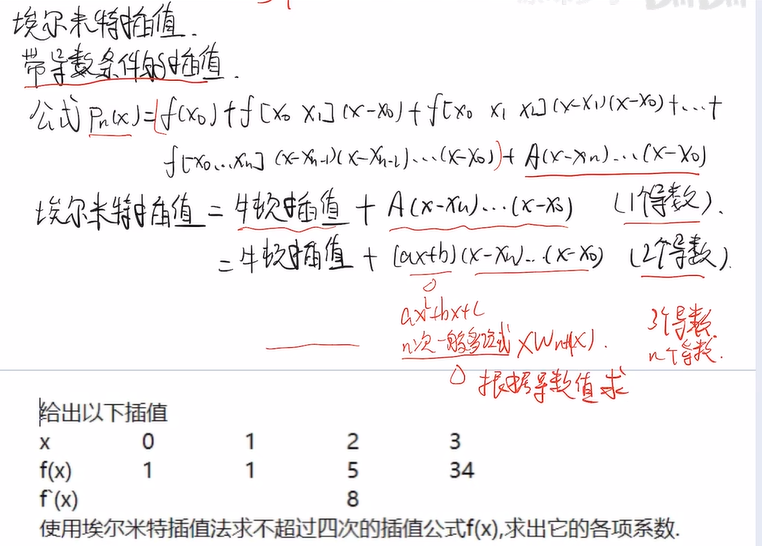 埃尔米特插值.
带导数条件的插值.
公式 Pn(x)=(f(x₀)+f[x₀ x₁](x-x₀)+f[x₀ x₁ x₂](x-x₁)(x-x₀)+...+
f[x₀...xn](x-xn-1)(x-xn-2)...(x-x₀))+A(x-xn)...(x-x₀)
埃尔米特插值=牛顿插值+A(x-xn)...(x-x₀) (1个导数).
=牛顿插值+(ax+b)(x-xn)...(x-x₀) (2个导数).
ax²+bx+c 3个导数
n次一般多项式×Wn+1(x). n个导数.
根据导数值求
给出以下插值
x 0 1 2 3
f(x) 1 1 5 34
f`(x) 8
使用埃尔米特插值法求不超过四次的插值公式f(x),求出它的各项系数.